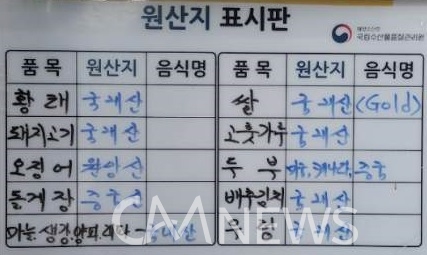 원산지 표시판
해양수산부
국립수산물품질관리원
품 목 원산지 음식명 품 목 원산지 음식명
황 태 국내산 쌀 국내산 (Gold)
돼지고기 국내산 고춧가루 국내산
오징어 원양산 두 부 미국, 캐나다, 중국
돌게장 중국산 배추김치 국내산
마늘, 생강, 양파, 국내산 우럭 국내산
CAMNEWS